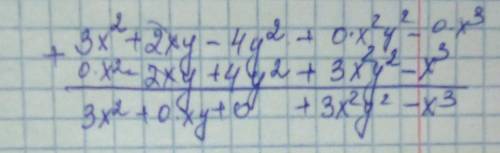 3x² + 2xy - 4y² + 0·x²y² - 0·x³
+
0·x² - 2xy + 4y² + 3x²y² - x³
3x² + 0·xy + 0 + 3x²y² - x³